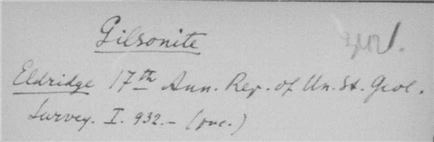 Gilsonite
Eldridge 17th Ann. Rep. of Un. St. Geol.
Survey. I. 932.— (occ.)